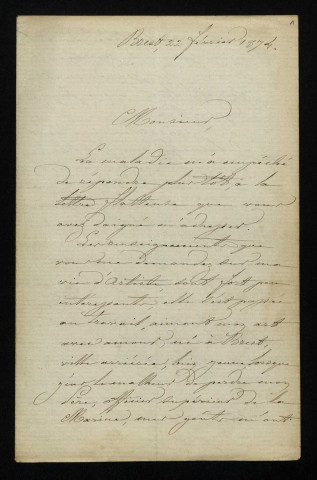 Brest, 22 février 1874.
Monsieur,
La maladie m'a empêché
de répondre plus tôt à la
lettre flatteuse que vous
avez daigné m'adresser.
Les renseignements que
vous me demandez sur ma
vie d'Artiste, sont fort peu
intéressants, elle s'est passée
au travail, aimant mon art
avec amour, né à Brest,
ville arriérée, bien jeune, lorsque
j'eus le malheur de perdre mon
Père, officier supérieur de la
Marine, mes goûts m'ont